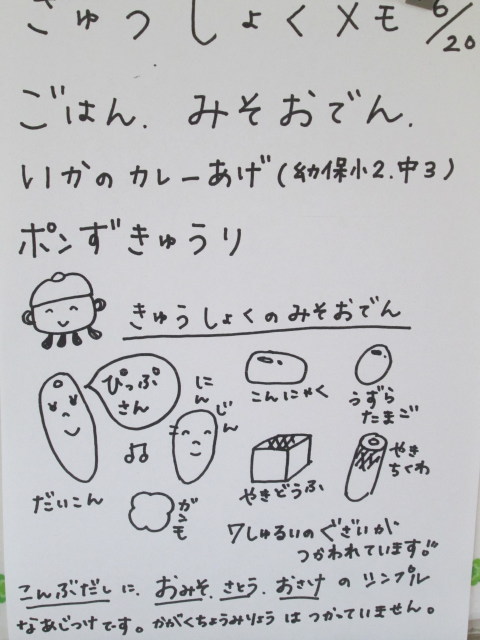 きゅうしょくメモ 6/20
ごはん. みそおでん.
いかのカレーあげ(幼保小2.中3)
ポンずきゅうり
きゅうしょくのみそおでん
ぴっぷ
さん
にんじん
だいこん
ガンモ
こんにゃく
うずら
たまご
やきどうふ
やき
ちくわ
7しゅるいのぐざいが
つかわれています。
こんぶだしに、おみそ、さとう、おさけのシンプル
なあじつけです。かがくちょうみりょうはつかっていません。